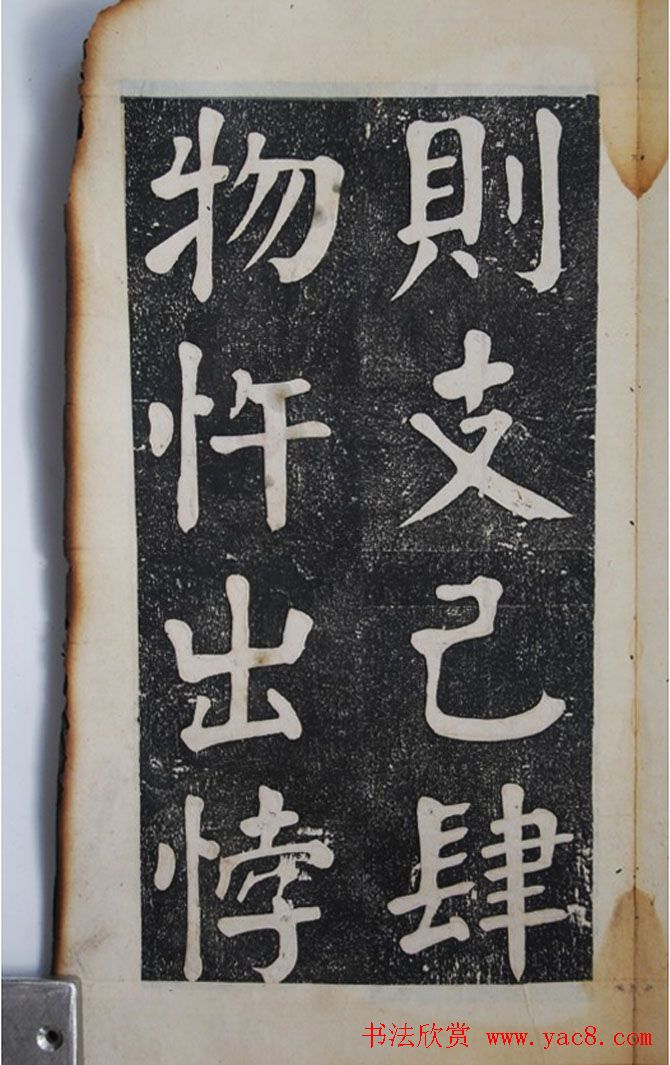 則支己肆
物忤出悖
书法欣赏 www.yac8.com